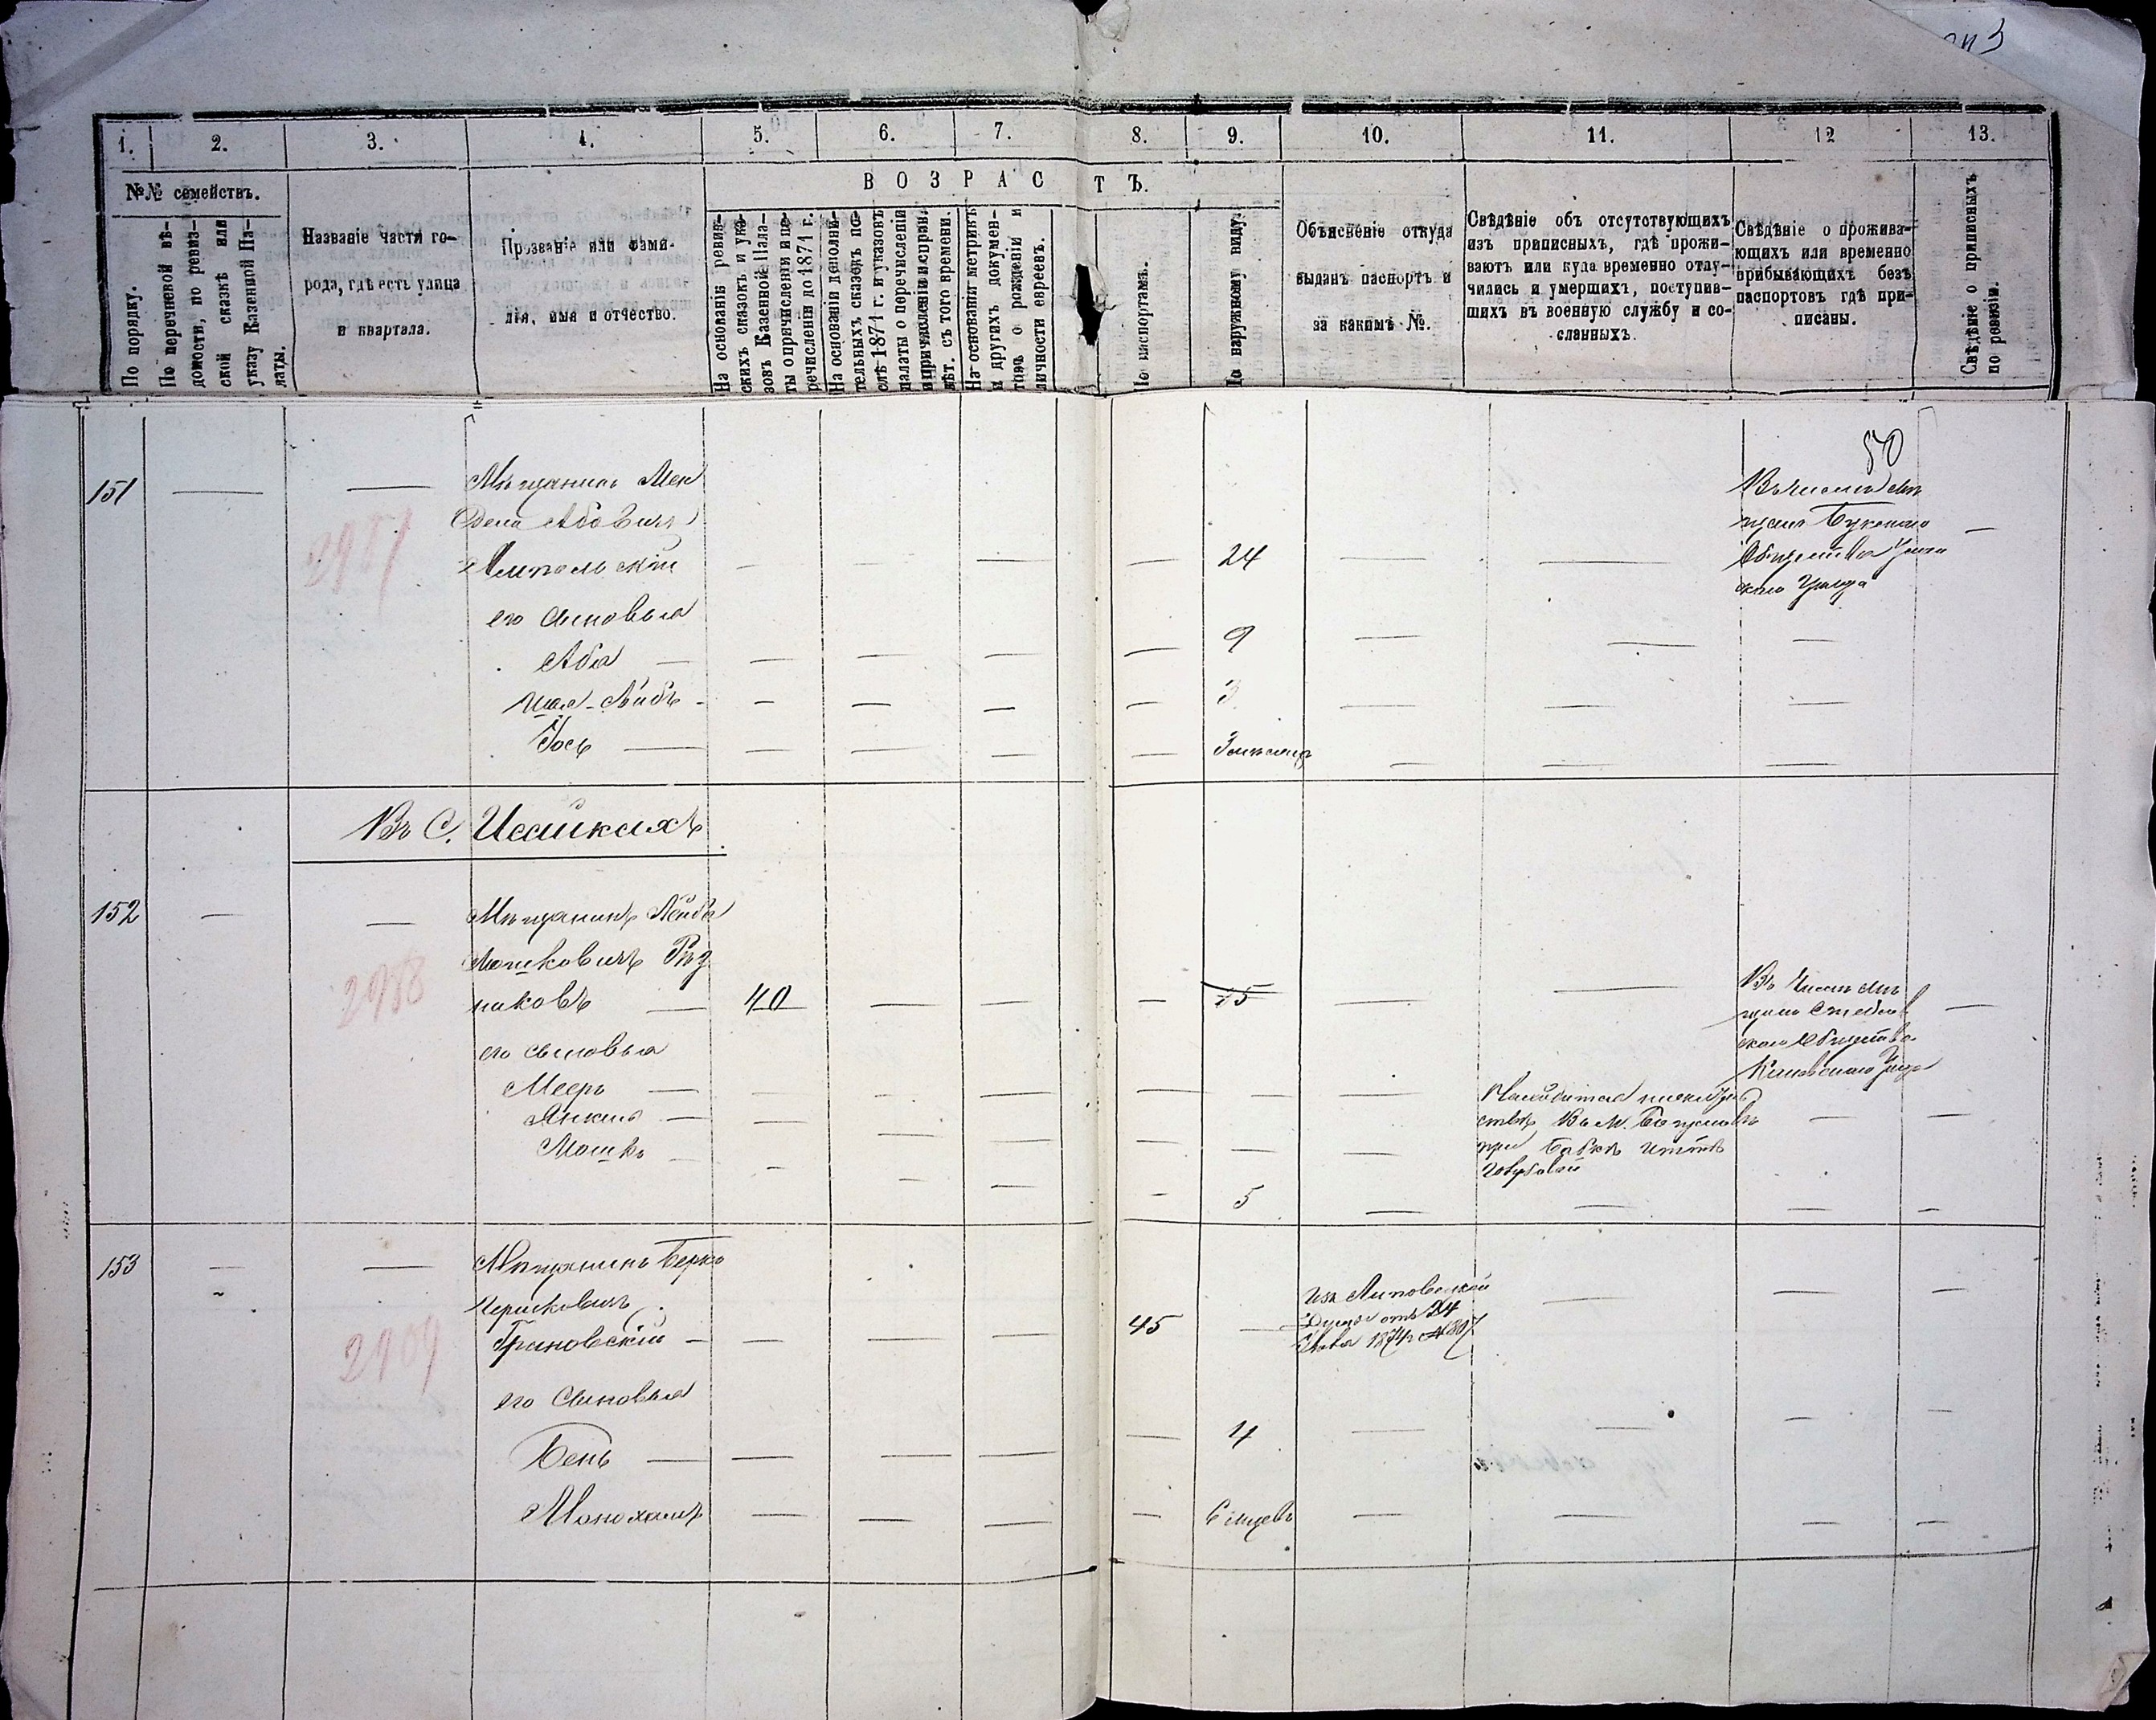 1.
2.
3.
4.
5.
6.
7.
8.
9.
10.
11.
12
13.
№№ семействъ.
ВОЗРАСТЪ.
По порядку.
По перечневой вѣ-
домости, по ревиз-
ской сказкѣ или
указу Казенной Па-
латы.
Названіе части го-
рода, гдѣ есть улица
и квартала.
Прозваніе или фами-
лія, имя и отчество.
На основаніи ревиз-
скихъ сказокъ и ука-
зовъ Казенной Пала-
ты о причисленіи и пе-
речисленіи до 1871 г.
На основаніи дополни-
тельныхъ сказокъ по-
слѣ 1871 г. и указовъ
палаты о перечисленіи
и причисленіи и исправ.
лѣт. съ того времени.
На основаніи метрикъ
и другихъ докумен-
товъ о рожденіи и
личности евреевъ.
По паспортамъ.
По наружному виду.
Объясненіе откуда
выданъ паспортъ и
за какимъ №.
Свѣдѣніе объ отсутствующихъ
изъ приписныхъ, гдѣ прожи-
ваютъ или куда временно отлу-
чились и умершихъ, поступив-
шихъ въ военную службу и со-
сланныхъ.
Свѣдѣніе о прожива-
ющихъ или временно
прибывающихъ безъ
паспортовъ гдѣ при-
писаны.
Свѣдѣніе о приписныхъ
по ревизіи.
50
151
2987
Мѣщанинъ Мен
дель Абовичъ
24
его сыновья
Аба
9
Шая-Лейбъ
3
Іось
Въ числѣ мѣ
щанъ Букскаго
Общества Уман
скаго Уѣзда
Въ С. Исайкахъ
152
2988
Мѣщанинъ Лейба
Мошковичъ Рѣз
никовъ
40
45
его сыновья
Мееръ
Янкель
Мошко
5
Въ числѣ мѣ
щанъ Стеблев
скаго Общества
Каневскаго Уѣзда
ствѣ въ м. Богуславѣ
при бабкѣ
153
2989
Мѣщанинъ Берко
Гершковичъ
Грановскій
45
Изъ Липовецкой
Думы отъ 24
1874 г. №
его сыновья
Бень
4
6 мѣсяцевъ